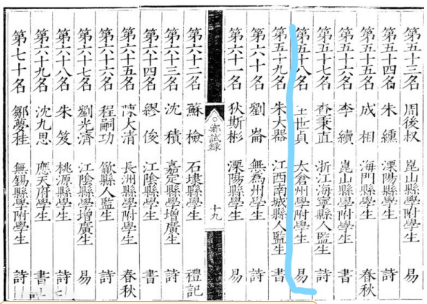 第五十三名 周後叔 崑山縣學附學生 詩
第五十四名 朱纁 溧陽縣學附學生 書
第五十五名 成相 海門縣學附學生 春秋
第五十六名 李續 崑山縣學附學生 詩
第五十七名 香秉直 浙江海寧縣人監生 書
第五十八名 王世貞 太倉州學附學生 易
第五十九名 朱大器 江西南城縣人監生 書
第六十名 劉崙 無為州學生 詩
第六十一名 狄斯彬 溧陽縣學附學生 易
十九
第六十二名 蘇檢 石埭縣學附學生 禮記
第六十三名 沈積 嘉定縣學增廣生 詩
第六十四名 繆俊 江陰縣學附學生 書
第六十五名 陸大清 長洲縣學附學生 春秋
第六十六名 程嗣功 歙縣人監生 詩
第六十七名 劉光濟 江陰縣學增廣生 易
第六十八名 朱笈 桃源縣學附學生 詩
第六十九名 沈九思 應天府學附學生 書
第七十名 鄒夢桂 無錫縣學增廣生 詩